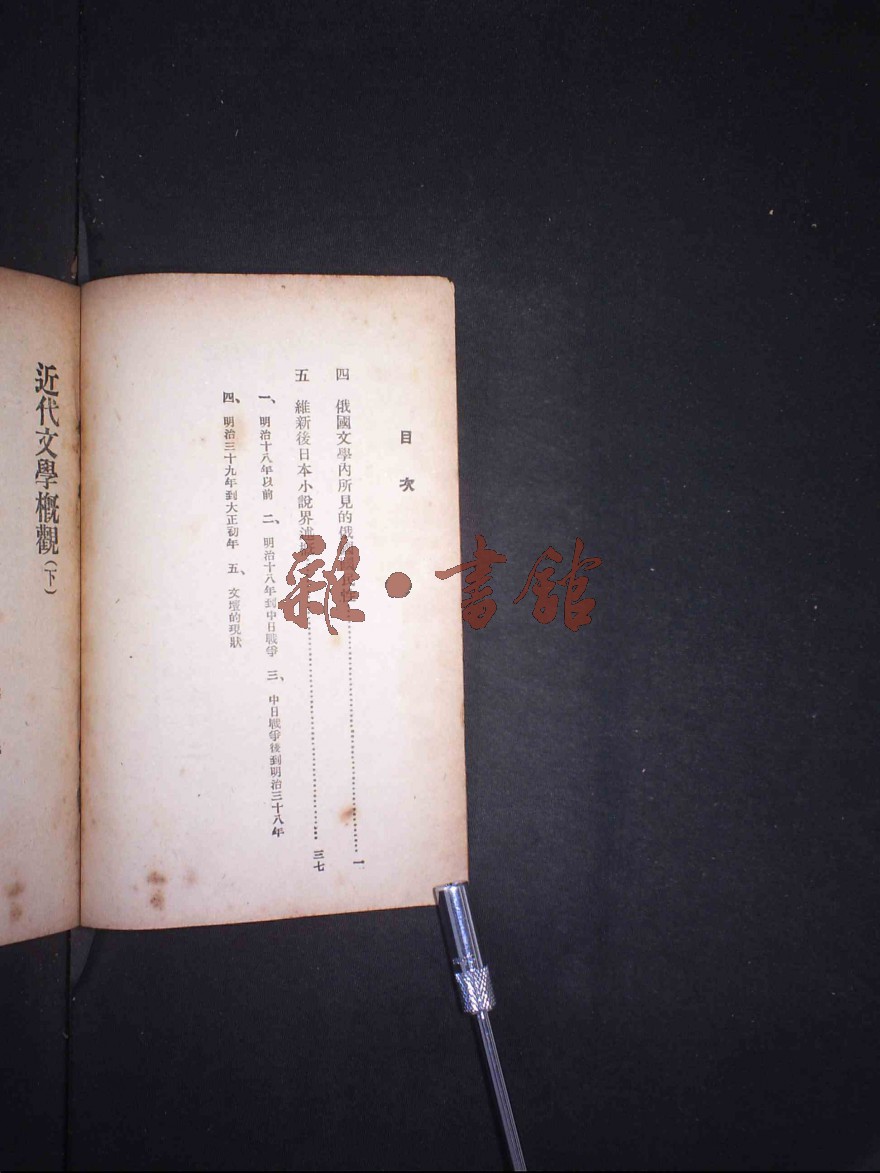 目次
四 俄國文學內所見的俄國
一
五 維新後日本小說界述
三七
一、明治十八年以前 二、明治十八年到中日戰爭 三、中日戰爭後到明治三十八年
四、明治三十九年到大正初年 五、文壇的現狀
近代文學概觀(下)
雜·書館